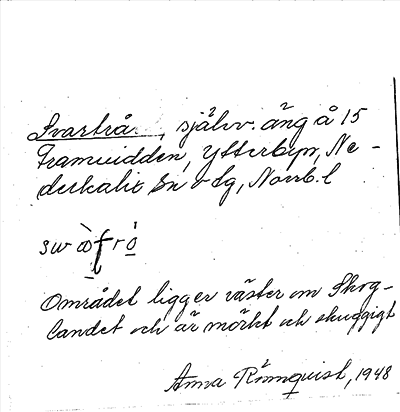 Svartrå, självv. äng å 15
Framvidden, Ytterbyn, Ne-
derkalix sn o lg, Norrb. l
Området ligger väster om Skog-
landet och är mörkt och skuggigt
Anna Rönnquist, 1948